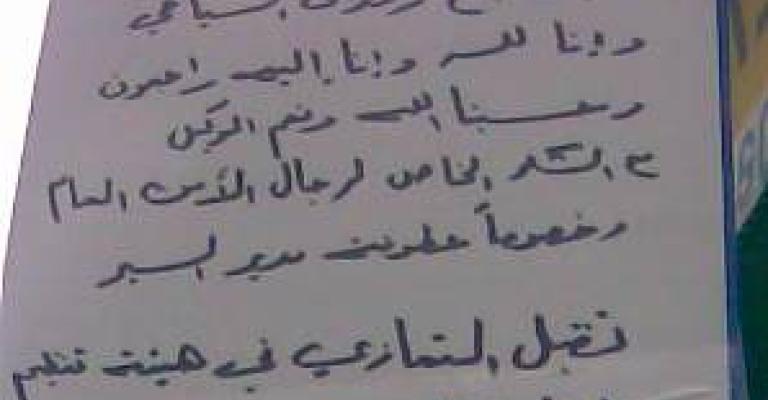 السباعي
وإنا لله وإنا إليه راجعون
وحسبنا الله ونعم الوكيل
مع الشكر الخاص لرجال الأمن العام
وخصوصاً عطوفة مدير السير
تقبل التعازي في هيئة تنظيم